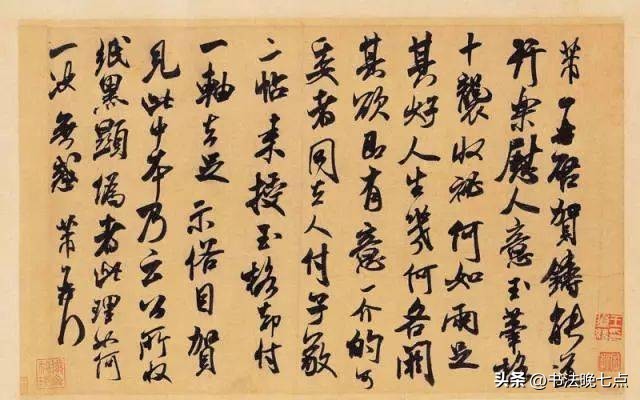 芾再啓賀鑄能道
行樂慰人意玉筆格
十襲收祕何如兩足
其好人生幾何各閼
其欲即有意一介的可
委者同去人付子敬
二帖來授玉格却付
一軸去足示俗目賀
見此中本乃云公所收
紙黑顯偽者此理如何
一決無惑 芾再行
头条 @书法晚七点